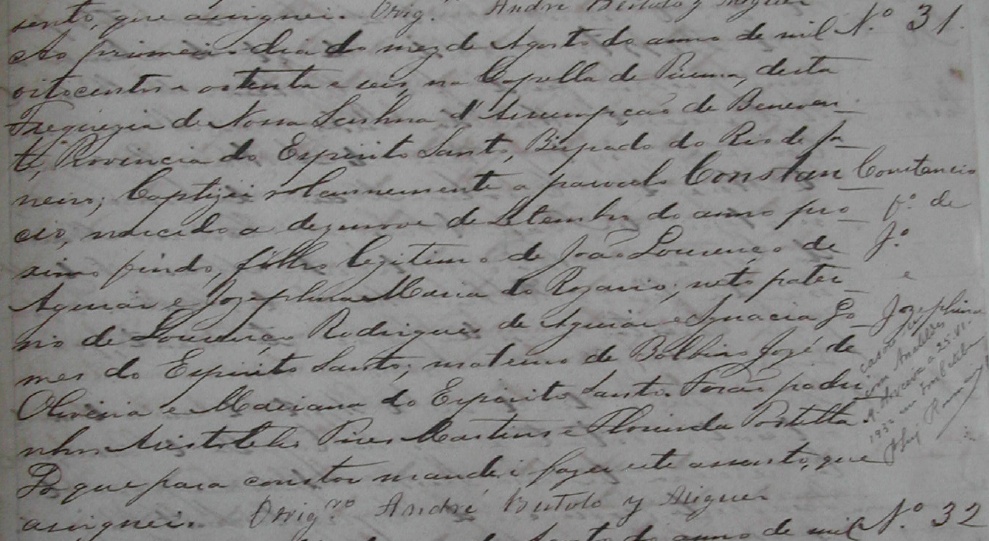 sento, que assignei. Orig. André Bertolo y
Ao primeiro dia do mez de Agosto do anno de mil Nº 31.
oitocentos e oitenta e seis, na Capella de Piuma, desta
Freguezia de Nossa Senhora d'Assumpção de Beneven
te, Provincia do Espirito Santo, Bispado do Rio de Ja
neiro, baptizei solemnemente a parvulo Constan Constancio
cio, nascido a dezenove de Setembro do anno pro fº de
ximo findo, filho legitimo de João Lourenço de Jº
Aguiar e Jozephina Maria do Rozario; neto pater e
no de Lourenço Rodrigues de Aguiar e Ignacia Go Jozephina
mes do Espirito Santo; materno de Balbino José de
Oliveira e Mariana do Espirito Santo. Forão padri
nhos Aristoteles Pires Martins e Florinda Portella
Do que para constar mandei fazer este assento, que
assignei. Orig.ro André Bertolo y
casou
com
a 25
1932 em
do anno de mil Nº 32